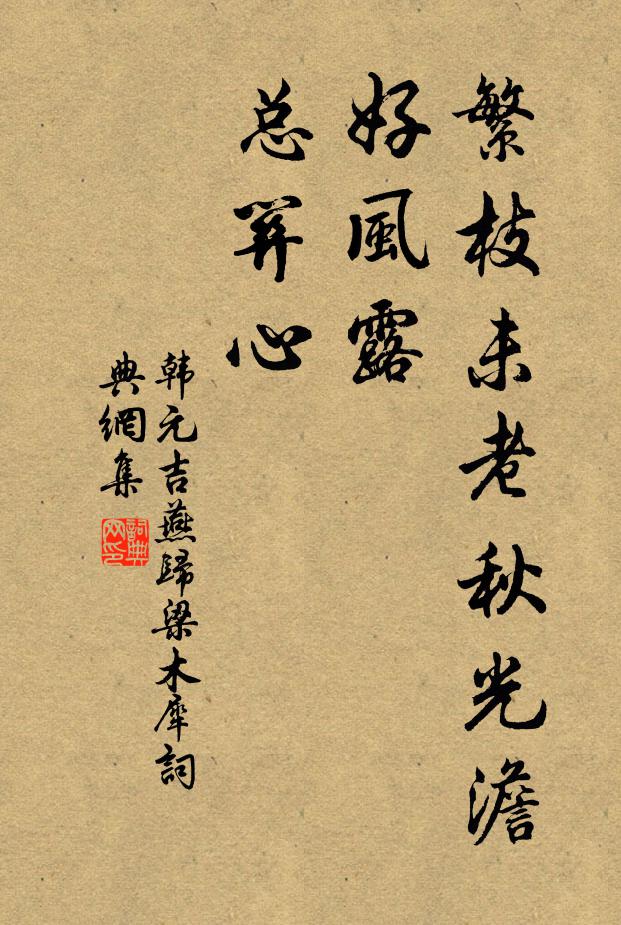 繁枝未老秋光澹
好風露
总關心
韩元吉燕歸梁木犀詞
典網集
詞典
网印